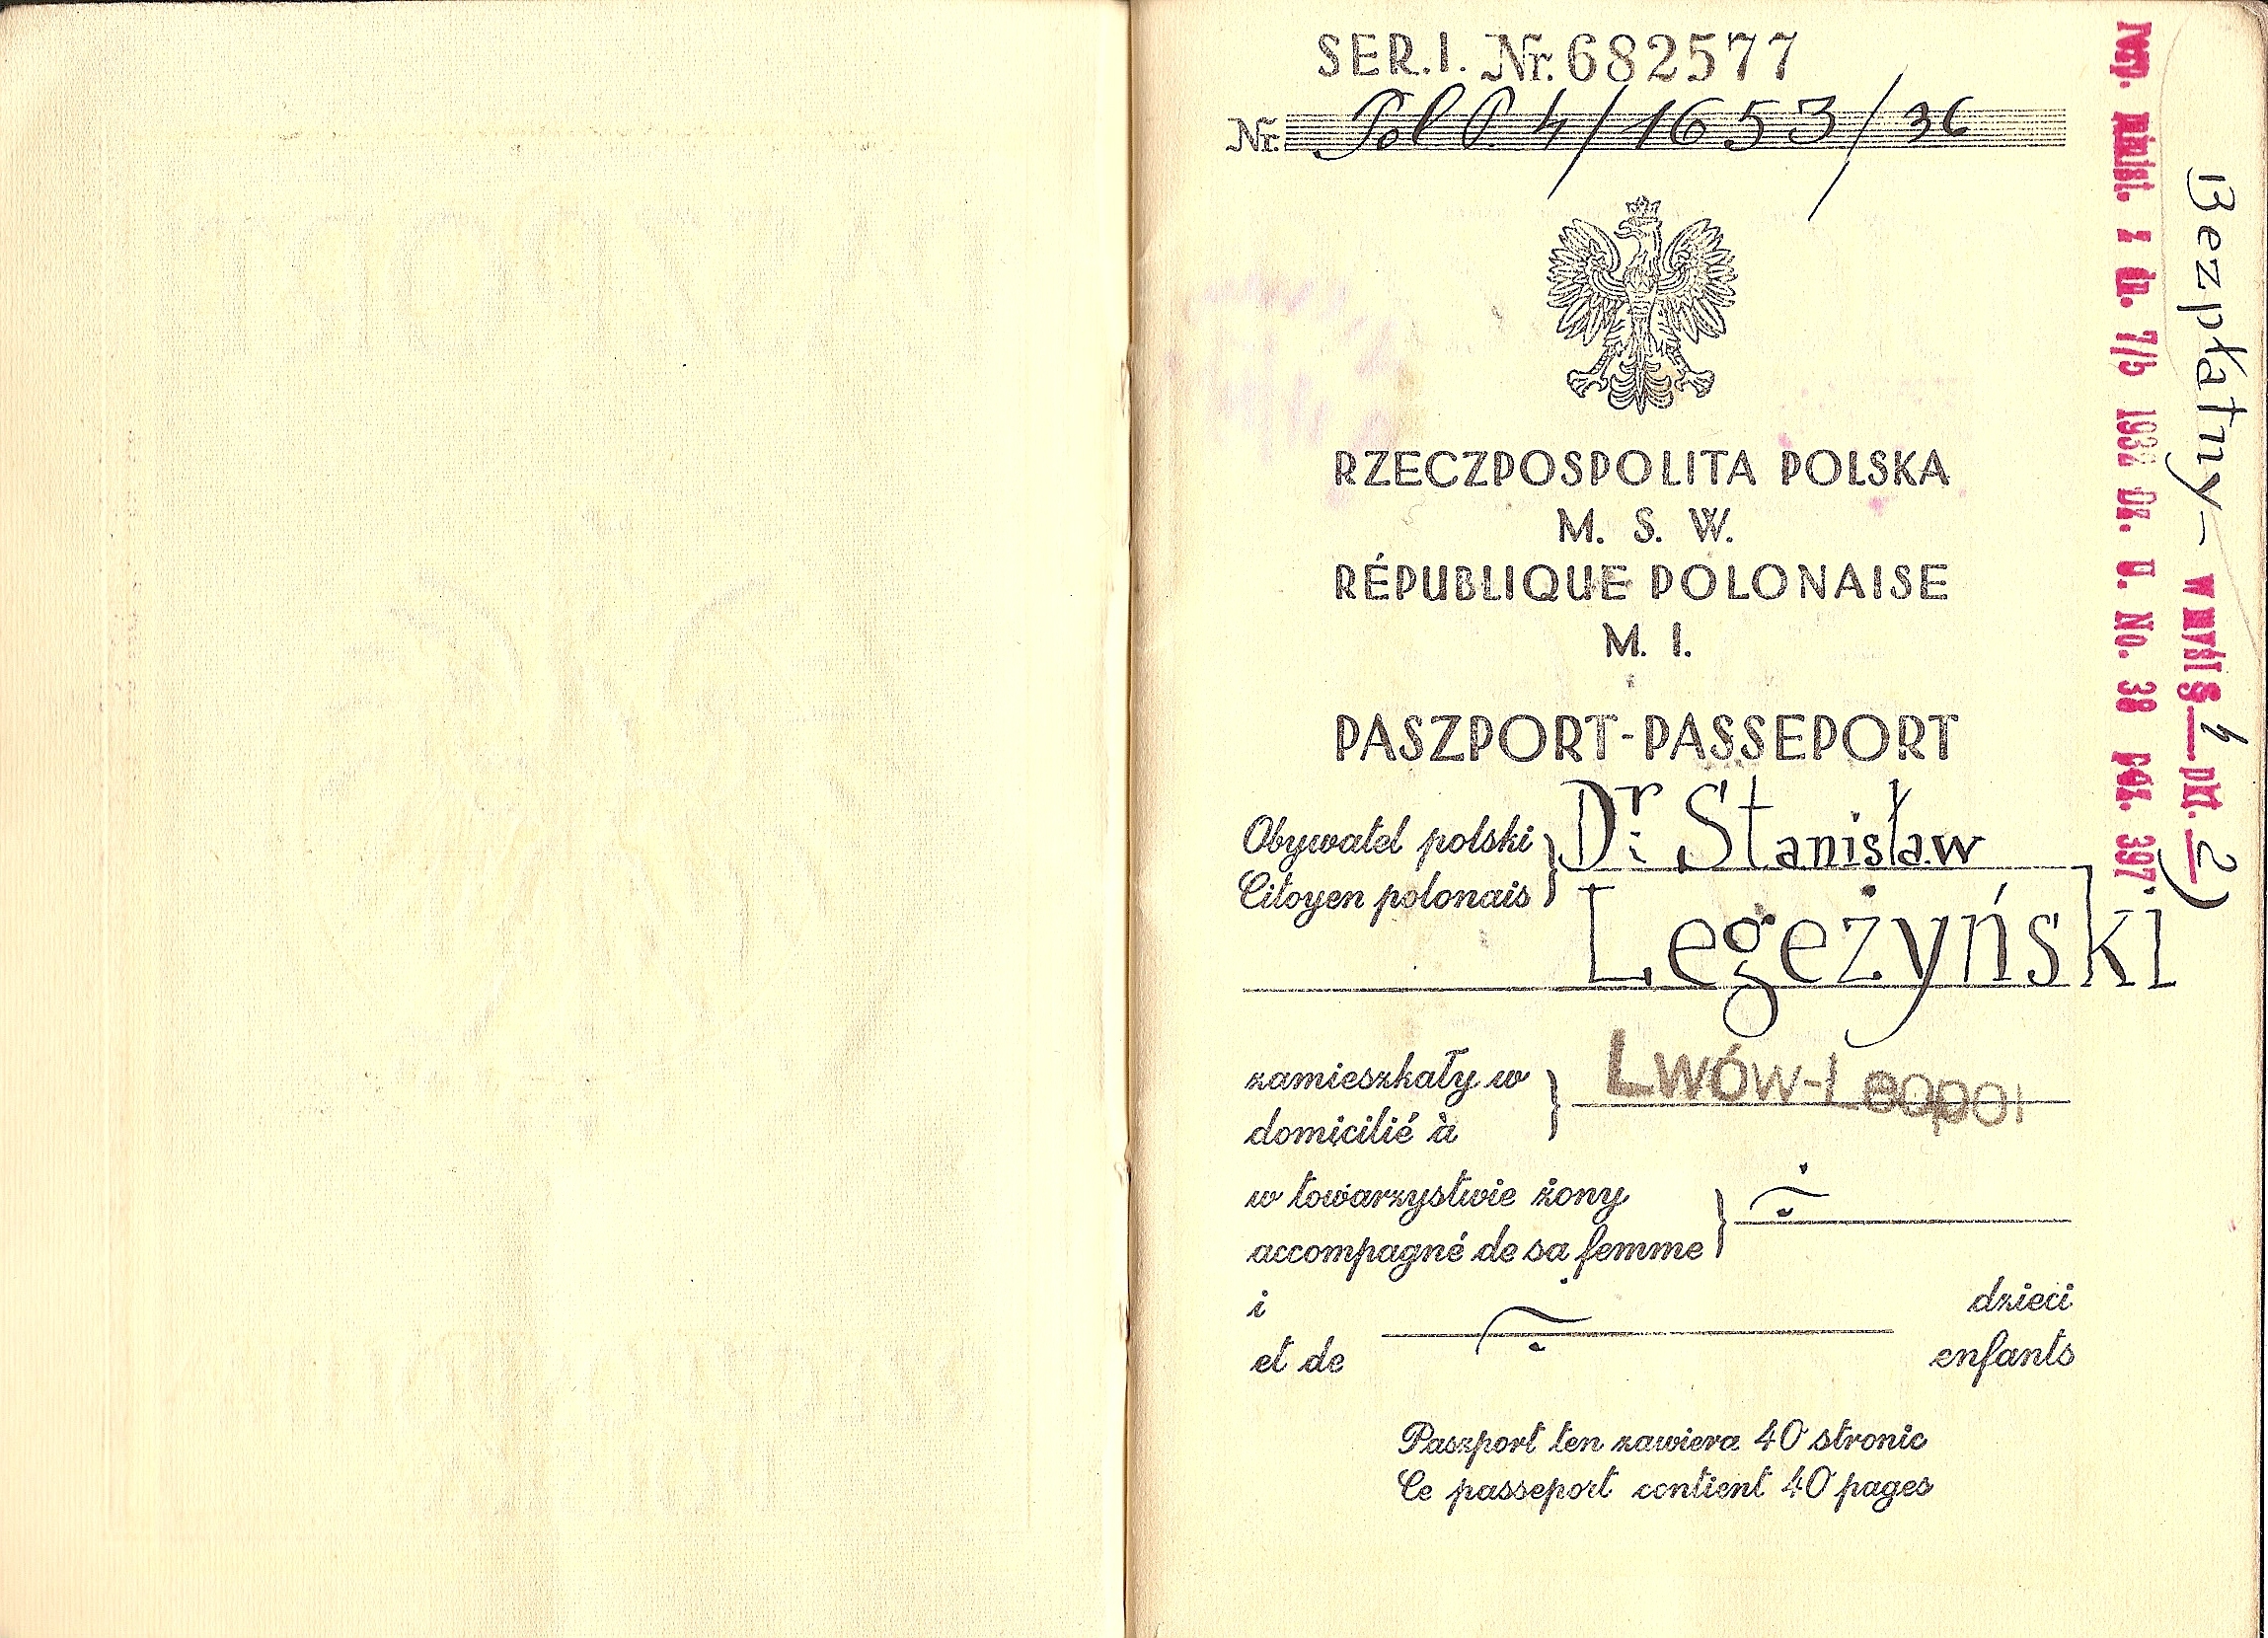 SER. I. Nr. 682577
Nr. Pol P. 4/1653/36
RZECZPOSPOLITA POLSKA
M. S. W.
RÉPUBLIQUE POLONAISE
M. I.
PASZPORT-PASSEPORT
Obywatel polski } Dr. Stanisław
Citoyen polonais
Legeżyński
zamieszkały w } Lwów-Leopol
domicilié à
w towarzystwie żony }
accompagné de sa femme
i dzieci
et de enfants
Paszport ten zawiera 40 stronic
Ce passeport contient 40 pages
Bezpłatny - w myśl § 4 pkt. 2)
rozp. Minist. z dn. 7/5 1932 Dz. U. No. 38 poz. 397